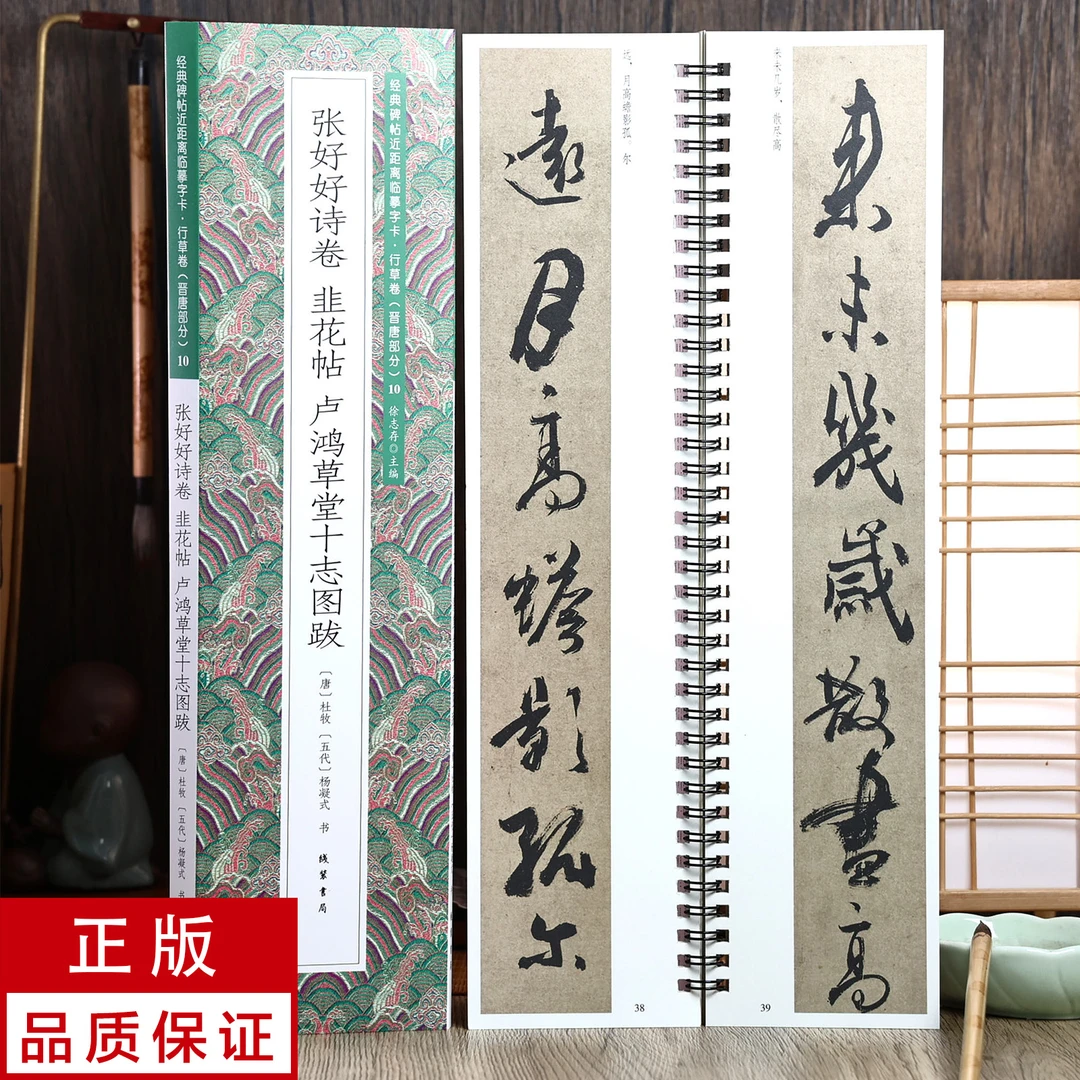 经典碑帖近距离临摹字卡·行草卷（晋唐部分）10
张好好诗卷 韭花帖 卢鸿草堂十志图跋
〔唐〕杜牧 〔五代〕杨凝式 书
经典碑帖近距离临摹字卡·行草卷（晋唐部分）10
徐志存◎主编
张好好诗卷 韭花帖 卢鸿草堂十志图跋
〔唐〕杜牧 〔五代〕杨凝式 书
线装书局
远，月高蟾影孤。尔
遠月高蟾影孤尔
38
来未几岁，散尽高
来未幾歲散盡高
39
正版
品质保证